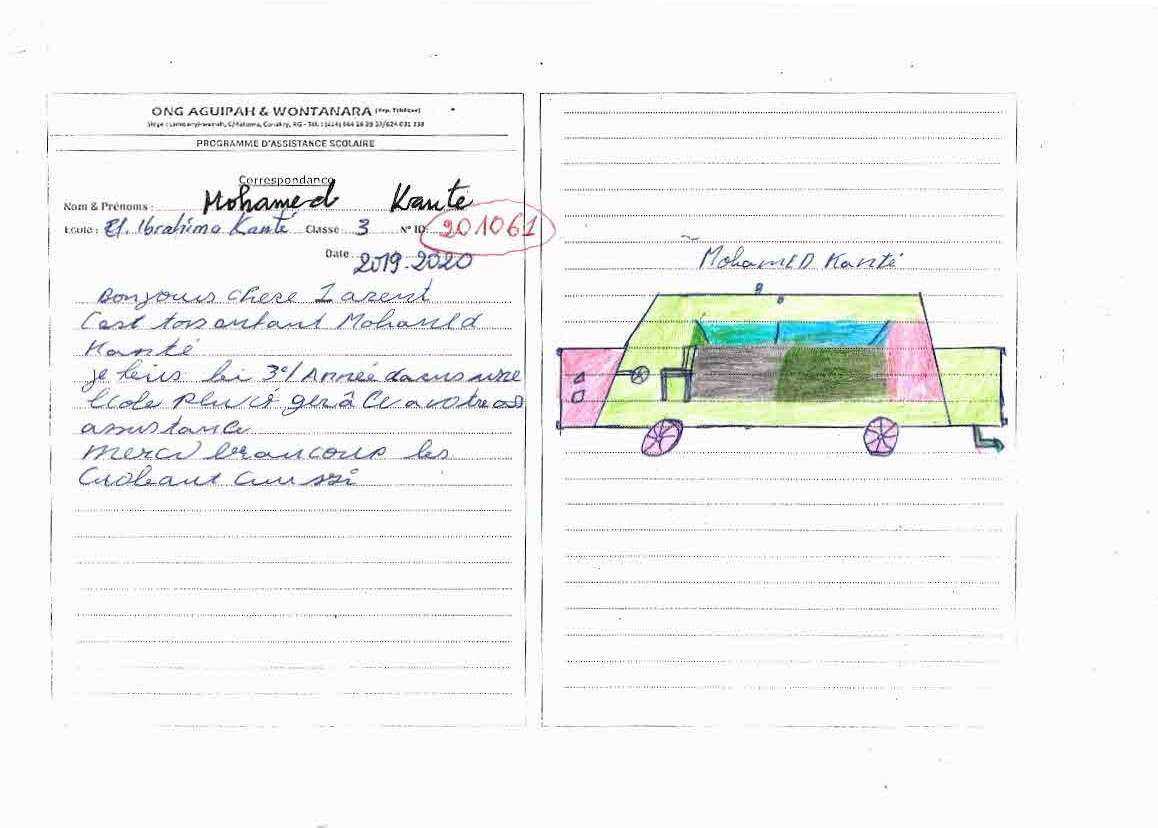 ONG AGUIPAH & WONTANARA (Rep. Tchèque)
PROGRAMME D'ASSISTANCE SCOLAIRE
Correspondance
Nom & Prénoms : Mohamed Kante
Ecole : El. Ibrahima Kanté Classe 3 N° ID: 201061
Date 2019.2020
Bonjours chere
C'est ton enfant Mohamed
Kanté
je 3e/ Année dans une
école a votre
assistance
merci beaucoup les

Mohamed Kanté